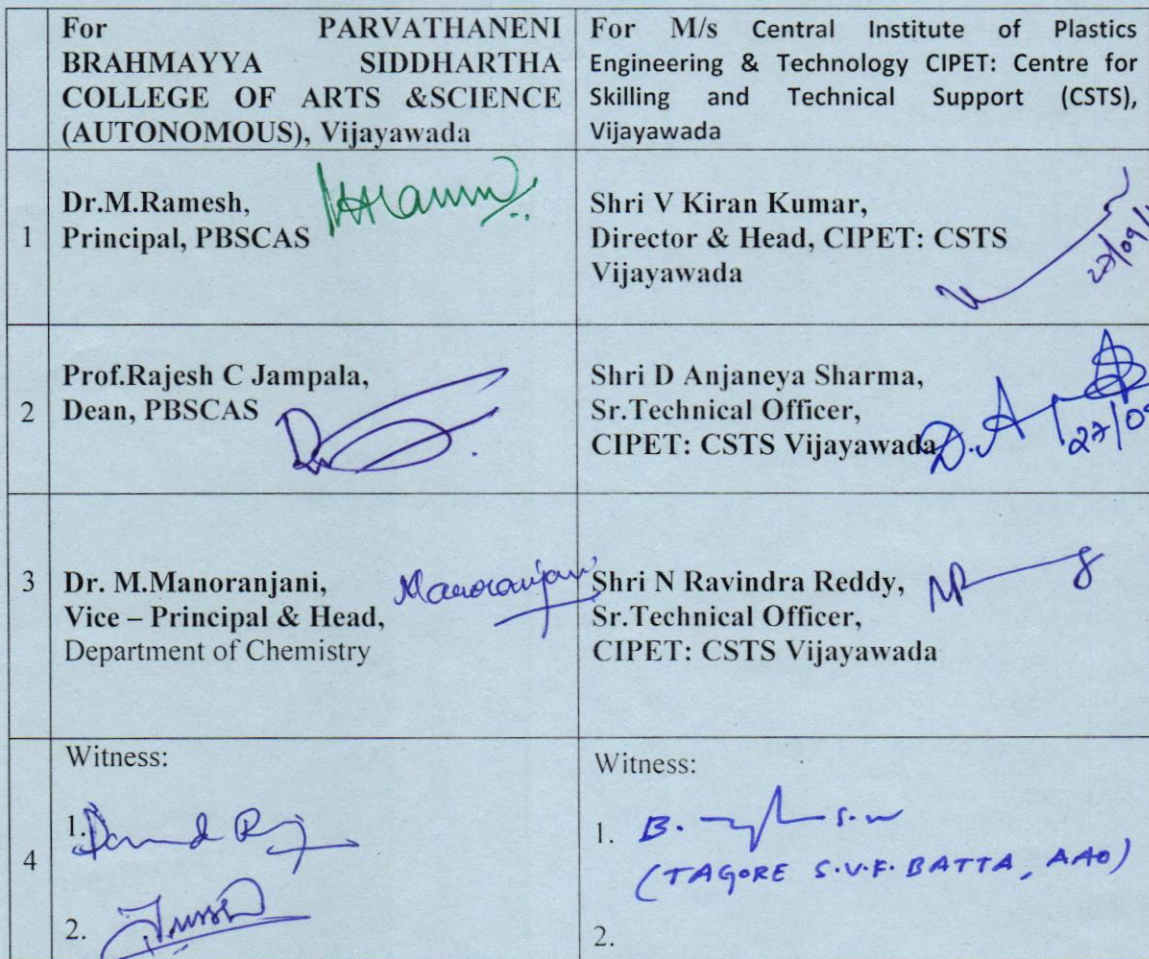 For PARVATHANENI
BRAHMAYYA SIDDHARTHA
COLLEGE OF ARTS &SCIENCE
(AUTONOMOUS), Vijayawada
For M/s Central Institute of Plastics
Engineering & Technology CIPET: Centre for
Skilling and Technical Support (CSTS),
Vijayawada
1
Dr.M.Ramesh,
Principal, PBSCAS
Shri V Kiran Kumar,
Director & Head, CIPET: CSTS
Vijayawada
27/09/
2
Prof.Rajesh C Jampala,
Dean, PBSCAS
Shri D Anjaneya Sharma,
Sr.Technical Officer,
CIPET: CSTS Vijayawada
D. A
27/09
3
Dr. M.Manoranjani,
Vice – Principal & Head,
Department of Chemistry
Manoranjani
Shri N Ravindra Reddy,
Sr.Technical Officer,
CIPET: CSTS Vijayawada
4
Witness:
1.
2.
Witness:
1. B.
(TAGORE S.V.F. BATTA, AAO)
2.